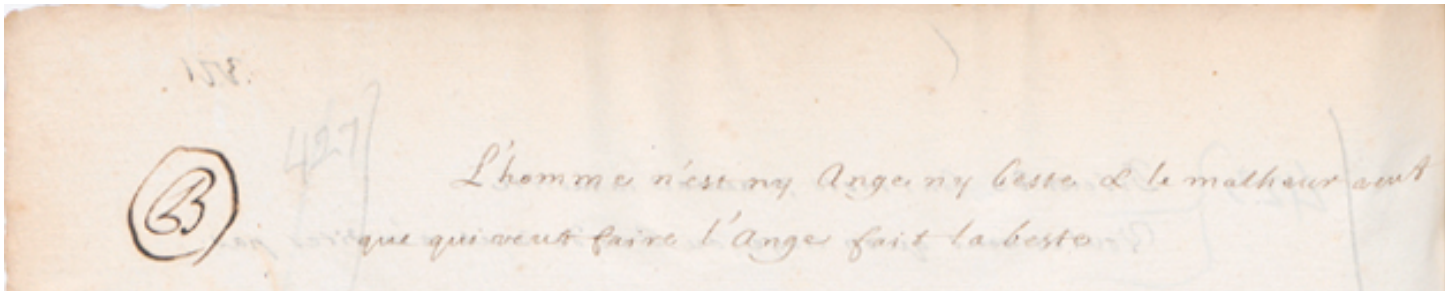 427
B
L'homme n'est ny Ange ny beste & le malheur veut
que qui veut faire l'Ange fait la beste